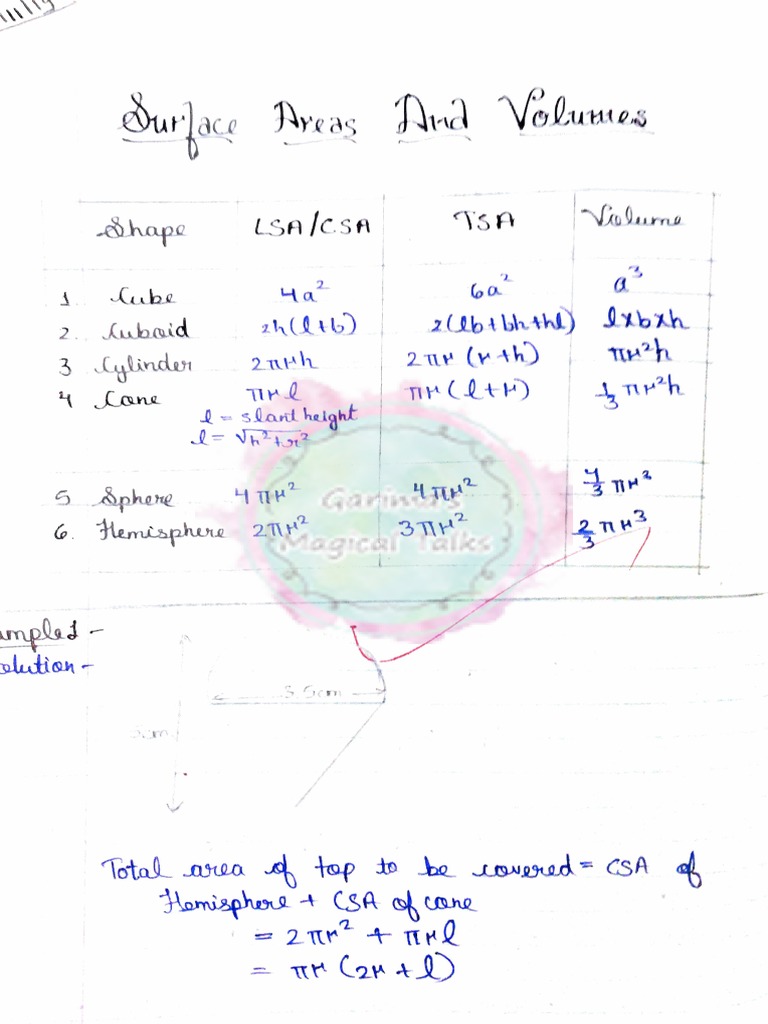 Surface Areas And Volumes
Shape LSA/CSA TSA Volume
1 Cube 4a² 6a² a³
2. Cuboid 2h(l+b) 2(lb+bh+hl) l×b×h
3 Cylinder 2πrh 2πr(r+h) πr²h
4 Cone πrl πr(l+r) 1/3 πr²h
l = slant height
l = √h²+r²
5 Sphere 4πr² 4πr² 4/3 πr³
6. Hemisphere 2πr² 3πr² 2/3 πr³
Garima's
Magical Talks
ample1 -
olution -
Total area of top to be covered = CSA of
Hemisphere + CSA of cone
= 2πr² + πrl
= πr(2r + l)